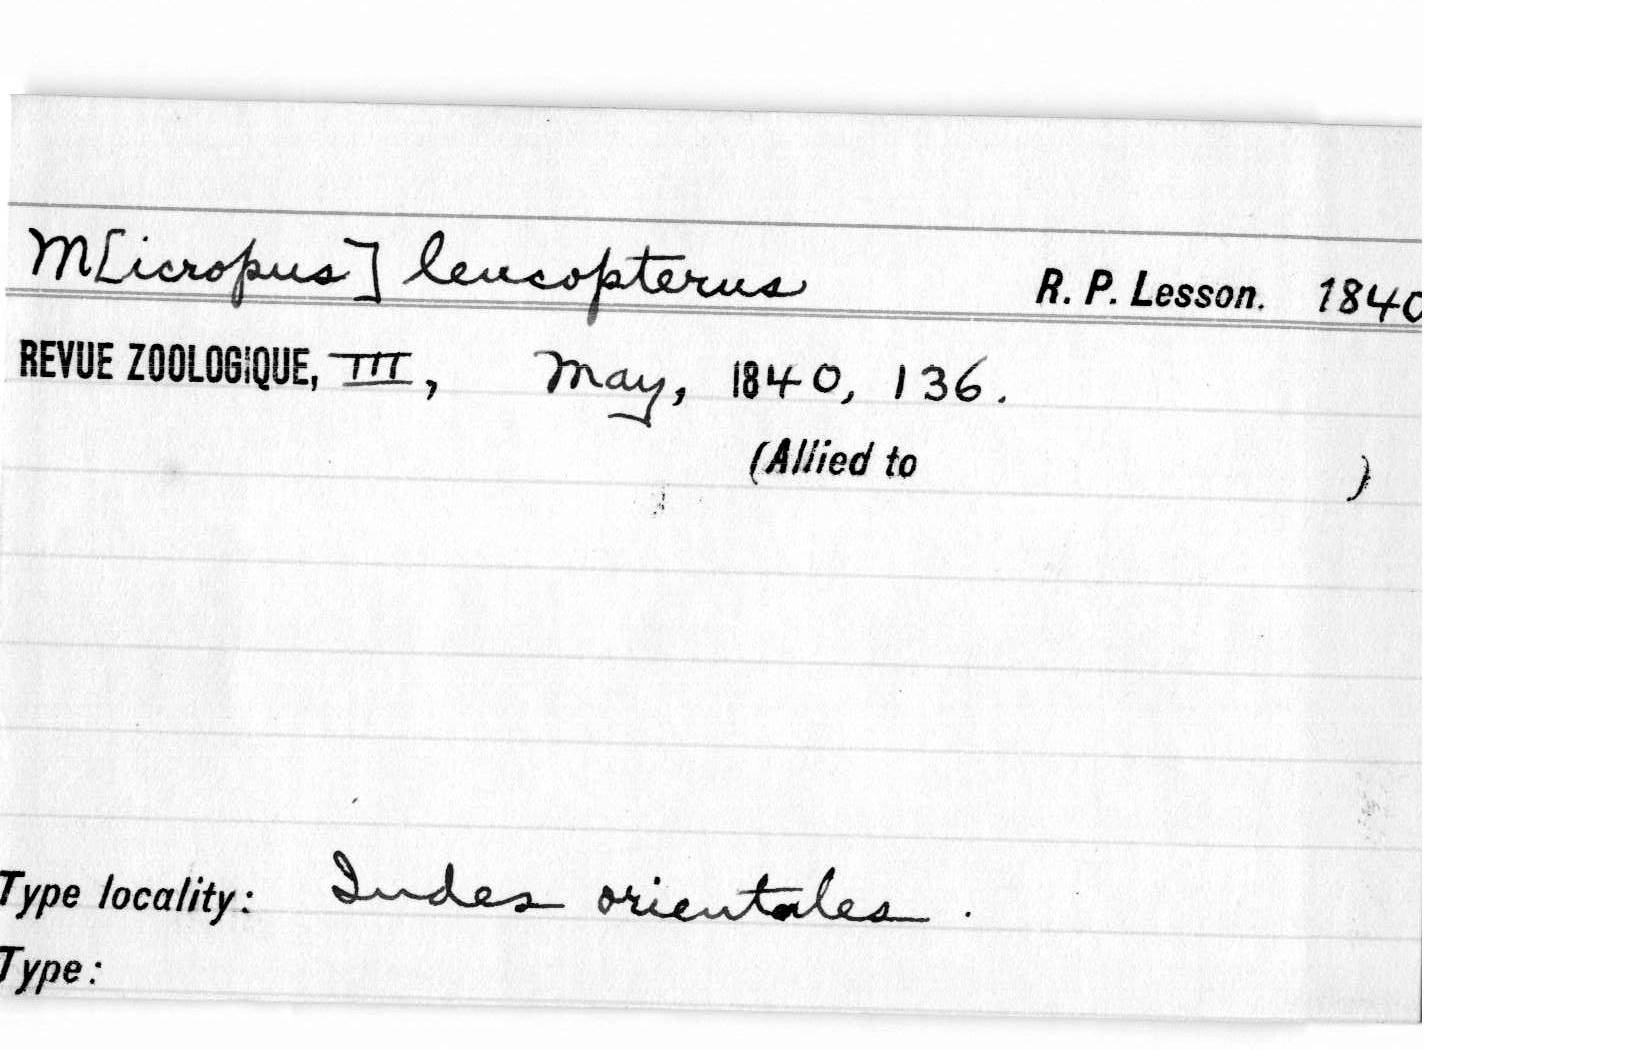 M[icropus] leucopterus R. P. Lesson. 1840
REVUE ZOOLOGIQUE, III, May, 1840, 136.
(Allied to )
Type locality: Indes orientales.
Type: